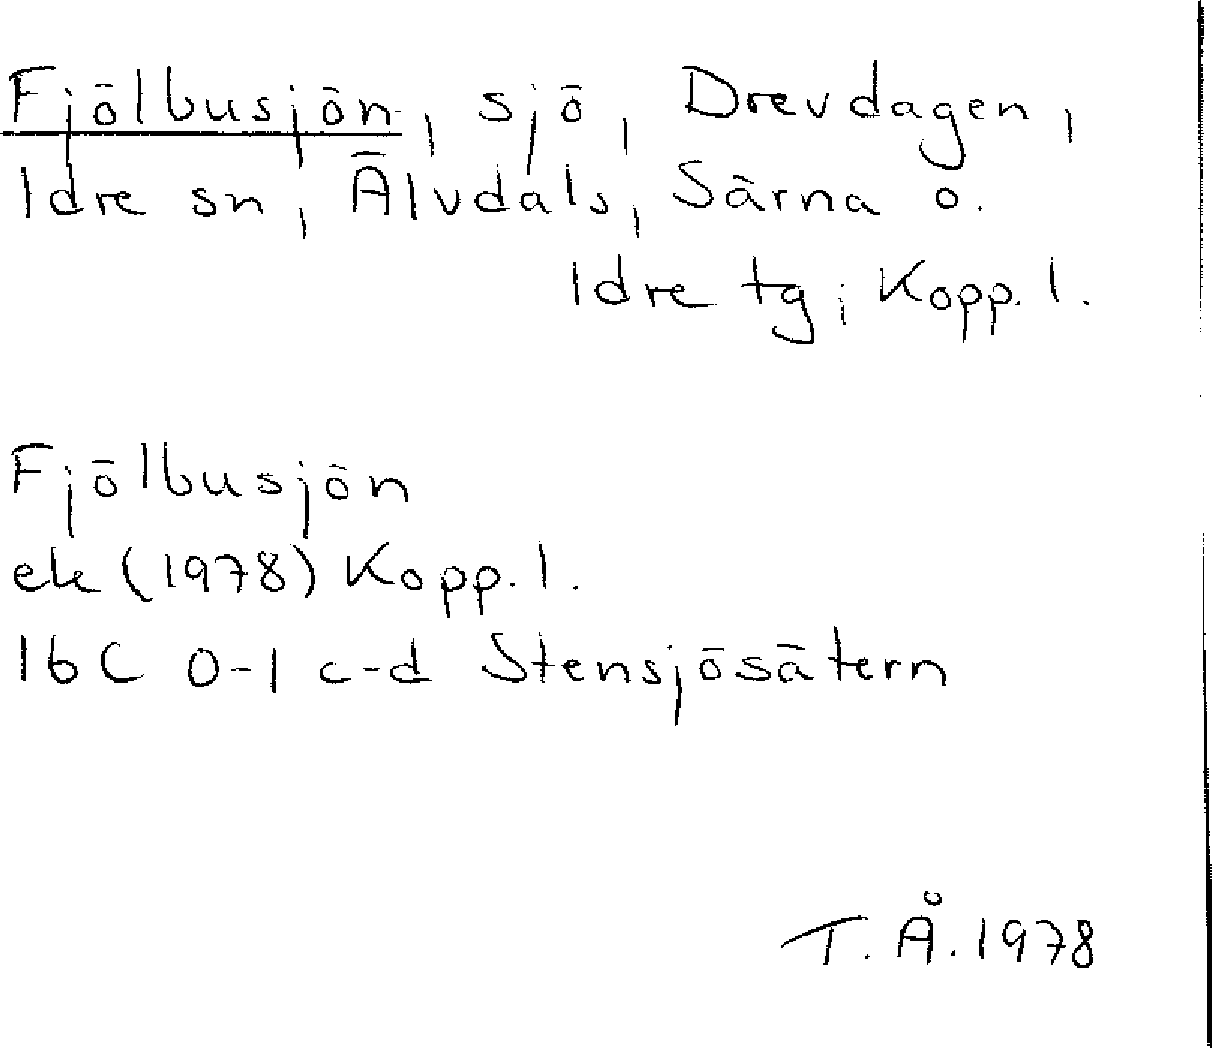 Fjölbusjön, sjö, Drevdagen,
Idre sn, Älvdals, Särna o.
Idre tg; Kopp. l.
Fjölbusjön
ek (1978) Kopp. l.
16C 0-1 c-d Stensjösätern
T. Å. 1978